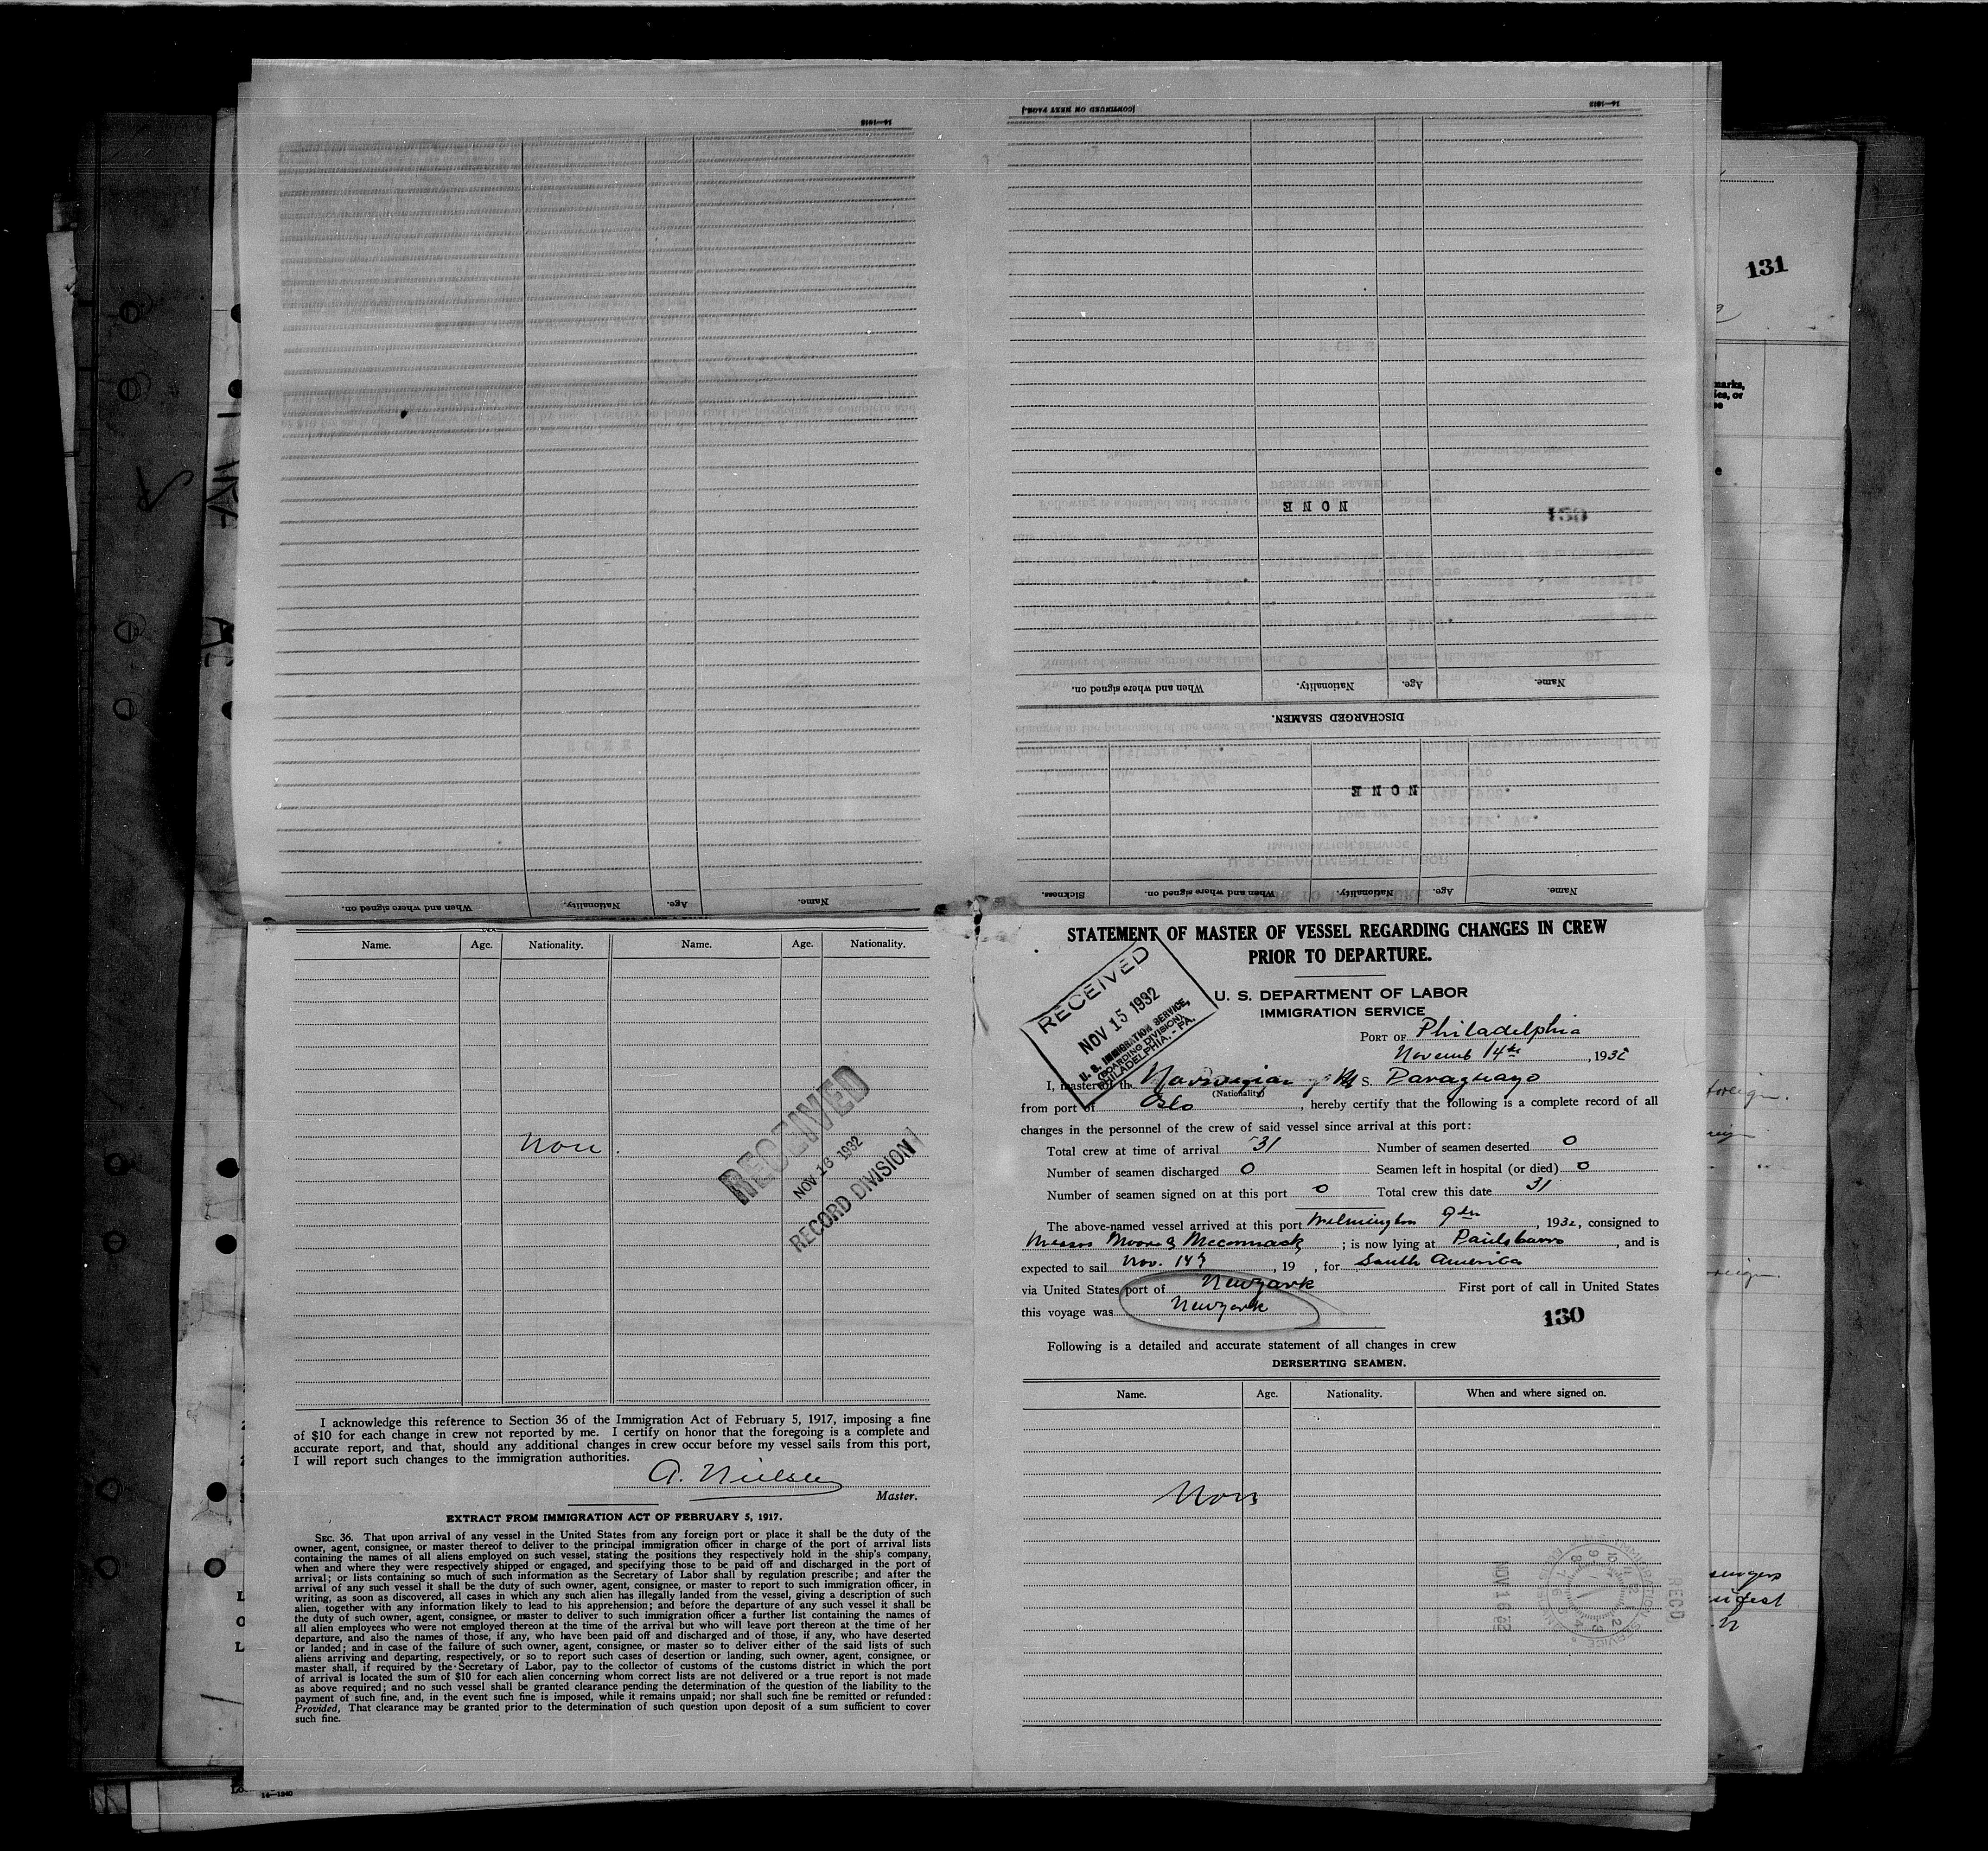 [CONTINUED ON NEXT PAGE.]
16—1618
16—1618
131
NONE
130
When and where signed on.
Nationality.
Age.
Name.
DISCHARGED SEAMEN.
NONE
Sickness.
When and where signed on.
Nationality.
Age.
Name.
When and where signed on.
Nationality.
Age.
Name.
Name. Age. Nationality. Name. Age. Nationality.
RECEIVED
NOV 1932
RECORD DIVISION
I acknowledge this reference to Section 36 of the Immigration Act of February 5, 1917, imposing a fine
of $10 for each change in crew not reported by me. I certify on honor that the foregoing is a complete and
accurate report, and that, should any additional changes in crew occur before my vessel sails from this port,
I will report such changes to the immigration authorities.
A. Nielsen
Master.
EXTRACT FROM IMMIGRATION ACT OF FEBRUARY 5, 1917.
SEC. 36. That upon arrival of any vessel in the United States from any foreign port or place it shall be the duty of the
owner, agent, consignee, or master thereof to deliver to the principal immigration officer in charge of the port of arrival lists
containing the names of all aliens employed on such vessel, stating the positions they respectively hold in the ship's company,
when and where they were respectively shipped or engaged, and specifying those to be paid off and discharged in the port of
arrival; or lists containing so much of such information as the Secretary of Labor shall by regulation prescribe; and after the
arrival of any such vessel it shall be the duty of such owner, agent, consignee, or master to report to such immigration officer, in
writing, as soon as discovered, all cases in which any such alien has illegally landed from the vessel, giving a description of such
alien, together with any information likely to lead to his apprehension; and before the departure of any such vessel it shall be
the duty of such owner, agent, consignee, or master to deliver to such immigration officer a further list containing the names of
all alien employees who were not employed thereon at the time of the arrival but who will leave port thereon at the time of her
departure, and also the names of those, if any, who have been paid off and discharged and of those, if any, who have deserted
or landed; and in case of the failure of such owner, agent, consignee, or master so to deliver either of the said lists of such
aliens arriving and departing, respectively, or so to report such cases of desertion or landing, such owner, agent, consignee, or
master shall, if required by the Secretary of Labor, pay to the collector of customs of the customs district in which the port
of arrival is located the sum of $10 for each alien concerning whom correct lists are not delivered or a true report is not made
as above required; and no such vessel shall be granted clearance pending the determination of the question of the liability to the
payment of such fine, and, in the event such fine is imposed, while it remains unpaid; nor shall such fine be remitted or refunded:
Provided, That clearance may be granted prior to the determination of such question upon deposit of a sum sufficient to cover
such fine.
16—1240
STATEMENT OF MASTER OF VESSEL REGARDING CHANGES IN CREW
PRIOR TO DEPARTURE.
RECEIVED
NOV 15 1932
U. S. IMMIGRATION SERVICE,
(BOARDING DIVISION),
PHILADELPHIA, - PA.
U. S. DEPARTMENT OF LABOR
IMMIGRATION SERVICE
PORT OF Philadelphia
Novemb 14th, 1932
I, master of the Norwegian S. Paraguayo
(Nationality)
from port of Oslo, hereby certify that the following is a complete record of all
changes in the personnel of the crew of said vessel since arrival at this port:
Total crew at time of arrival 31 Number of seamen deserted 0
Number of seamen discharged 0 Seamen left in hospital (or died) 0
Number of seamen signed on at this port 0 Total crew this date 31
The above-named vessel arrived at this port Wilmington 9th, 1932, consigned to
Messrs Moore & Mccormack; is now lying at Paulsboro, and is
expected to sail Nov. 14, 19 , for South America
via United States port of Newyork First port of call in United States
this voyage was Newyork
130
Following is a detailed and accurate statement of all changes in crew
DERSERTING SEAMEN.
Name. Age. Nationality. When and where signed on.
RECD
NOV 16